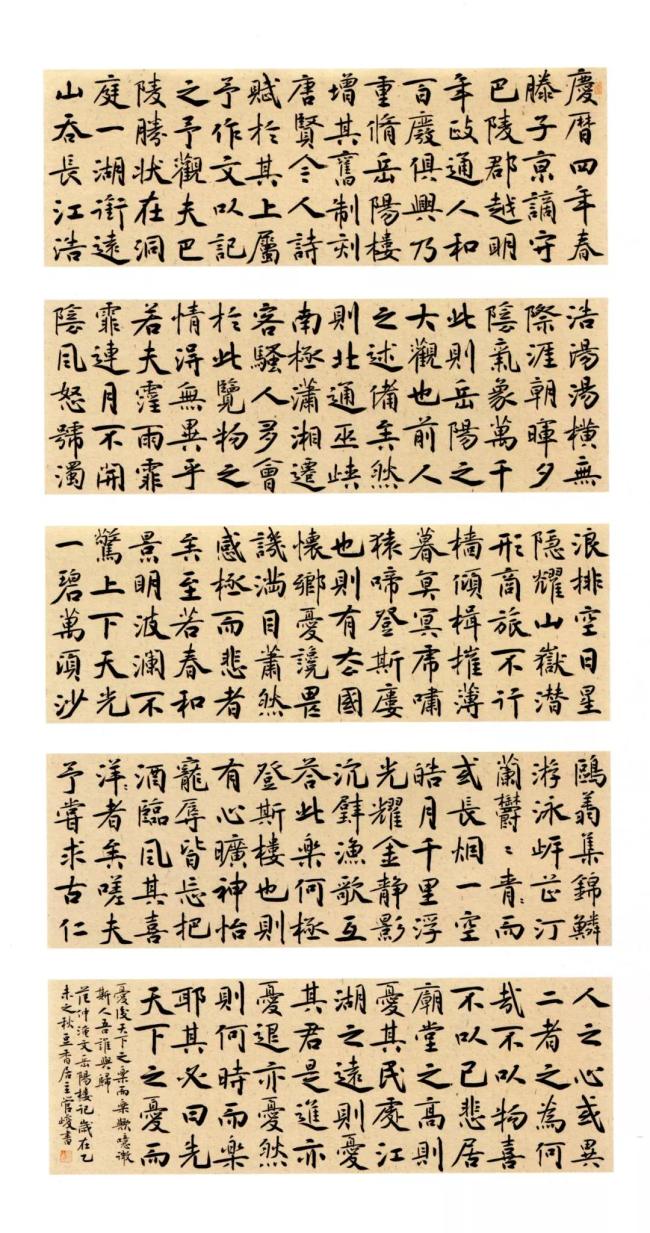 慶曆四年春
滕子京謫守
巴陵郡越明
年政通人和
百廢俱興乃
重脩岳陽樓
增其舊制刻
唐賢今人詩
賦於其上屬
予作文以記
之予觀夫巴
陵勝狀在洞
庭一湖銜遠
山吞長江浩
浩湯湯橫無
際涯朝暉夕
陰氣象萬千
此則岳陽之
大觀也前人
之述備矣然
則北通巫峽
南極瀟湘遷
客騷人多會
於此覽物之
情得無異乎
若夫霪雨霏
霏連月不開
陰風怒號濁
浪排空日星
隱耀山嶽潛
形商旅不行
檣傾楫摧薄
暮冥冥虎嘯
猿啼登斯樓
也則有去國
懷鄉憂讒畏
譏滿目蕭然
感極而悲者
矣至若春和
景明波瀾不
驚上下天光
一碧萬頃沙
鷗翔集錦鱗
游泳岸芷汀
蘭鬱〻青〻而
或長烟一空
皓月千里浮
光耀金靜影
沉璧漁歌互
答此樂何極
登斯樓也則
有心曠神怡
寵辱皆忘把
酒臨風其喜
洋〻者矣嗟夫
予嘗求古仁
人之心或異
二者之為何
哉不以物喜
不以己悲居
廟堂之高則
憂其民處江
湖之遠則憂
其君是進亦
憂退亦憂然
則何時而樂
耶其必曰先
天下之憂而
憂後天下之樂而樂歟噫微
斯人吾誰與歸
范仲淹文岳陽樓記歲在乙
未之秋豆香居主管峻書